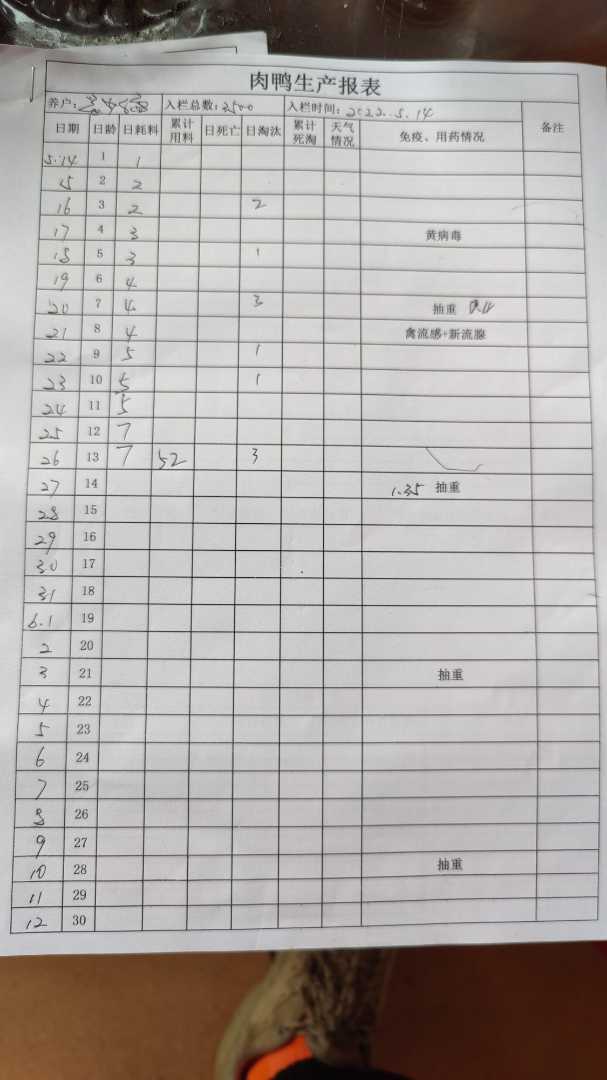 肉鸭生产报表
养户: 入栏总数: 2500 入栏时间: 2022.5.14 备注
日期 日龄 日耗料 累计用料 日死亡 日淘汰 累计死淘 天气情况 免疫、用药情况
5.14 1 1
15 2 2
16 3 2 2
17 4 3 黄病毒
18 5 3 1
19 6 4
20 7 4 3 抽重
21 8 4 禽流感+新流腺
22 9 5 1
23 10 5 1
24 11 5
25 12 7
26 13 7 52 3
27 14 1.35 抽重
28 15
29 16
30 17
31 18
6.1 19
2 20
3 21 抽重
4 22
5 23
6 24
7 25
8 26
9 27
10 28 抽重
11 29
12 30